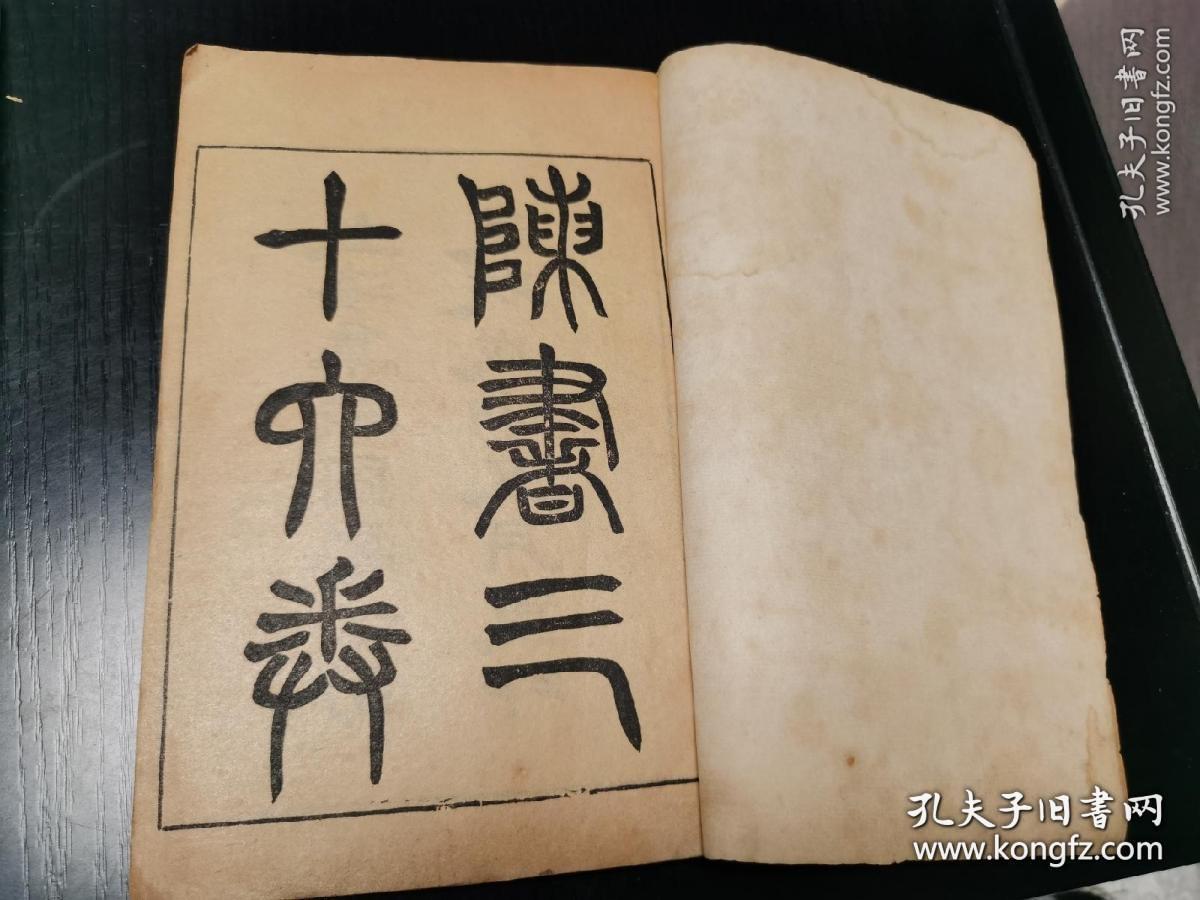 陳書三
十六卷
孔夫子旧书网
www.kongfz.com
孔夫子旧书网
www.kongfz.com